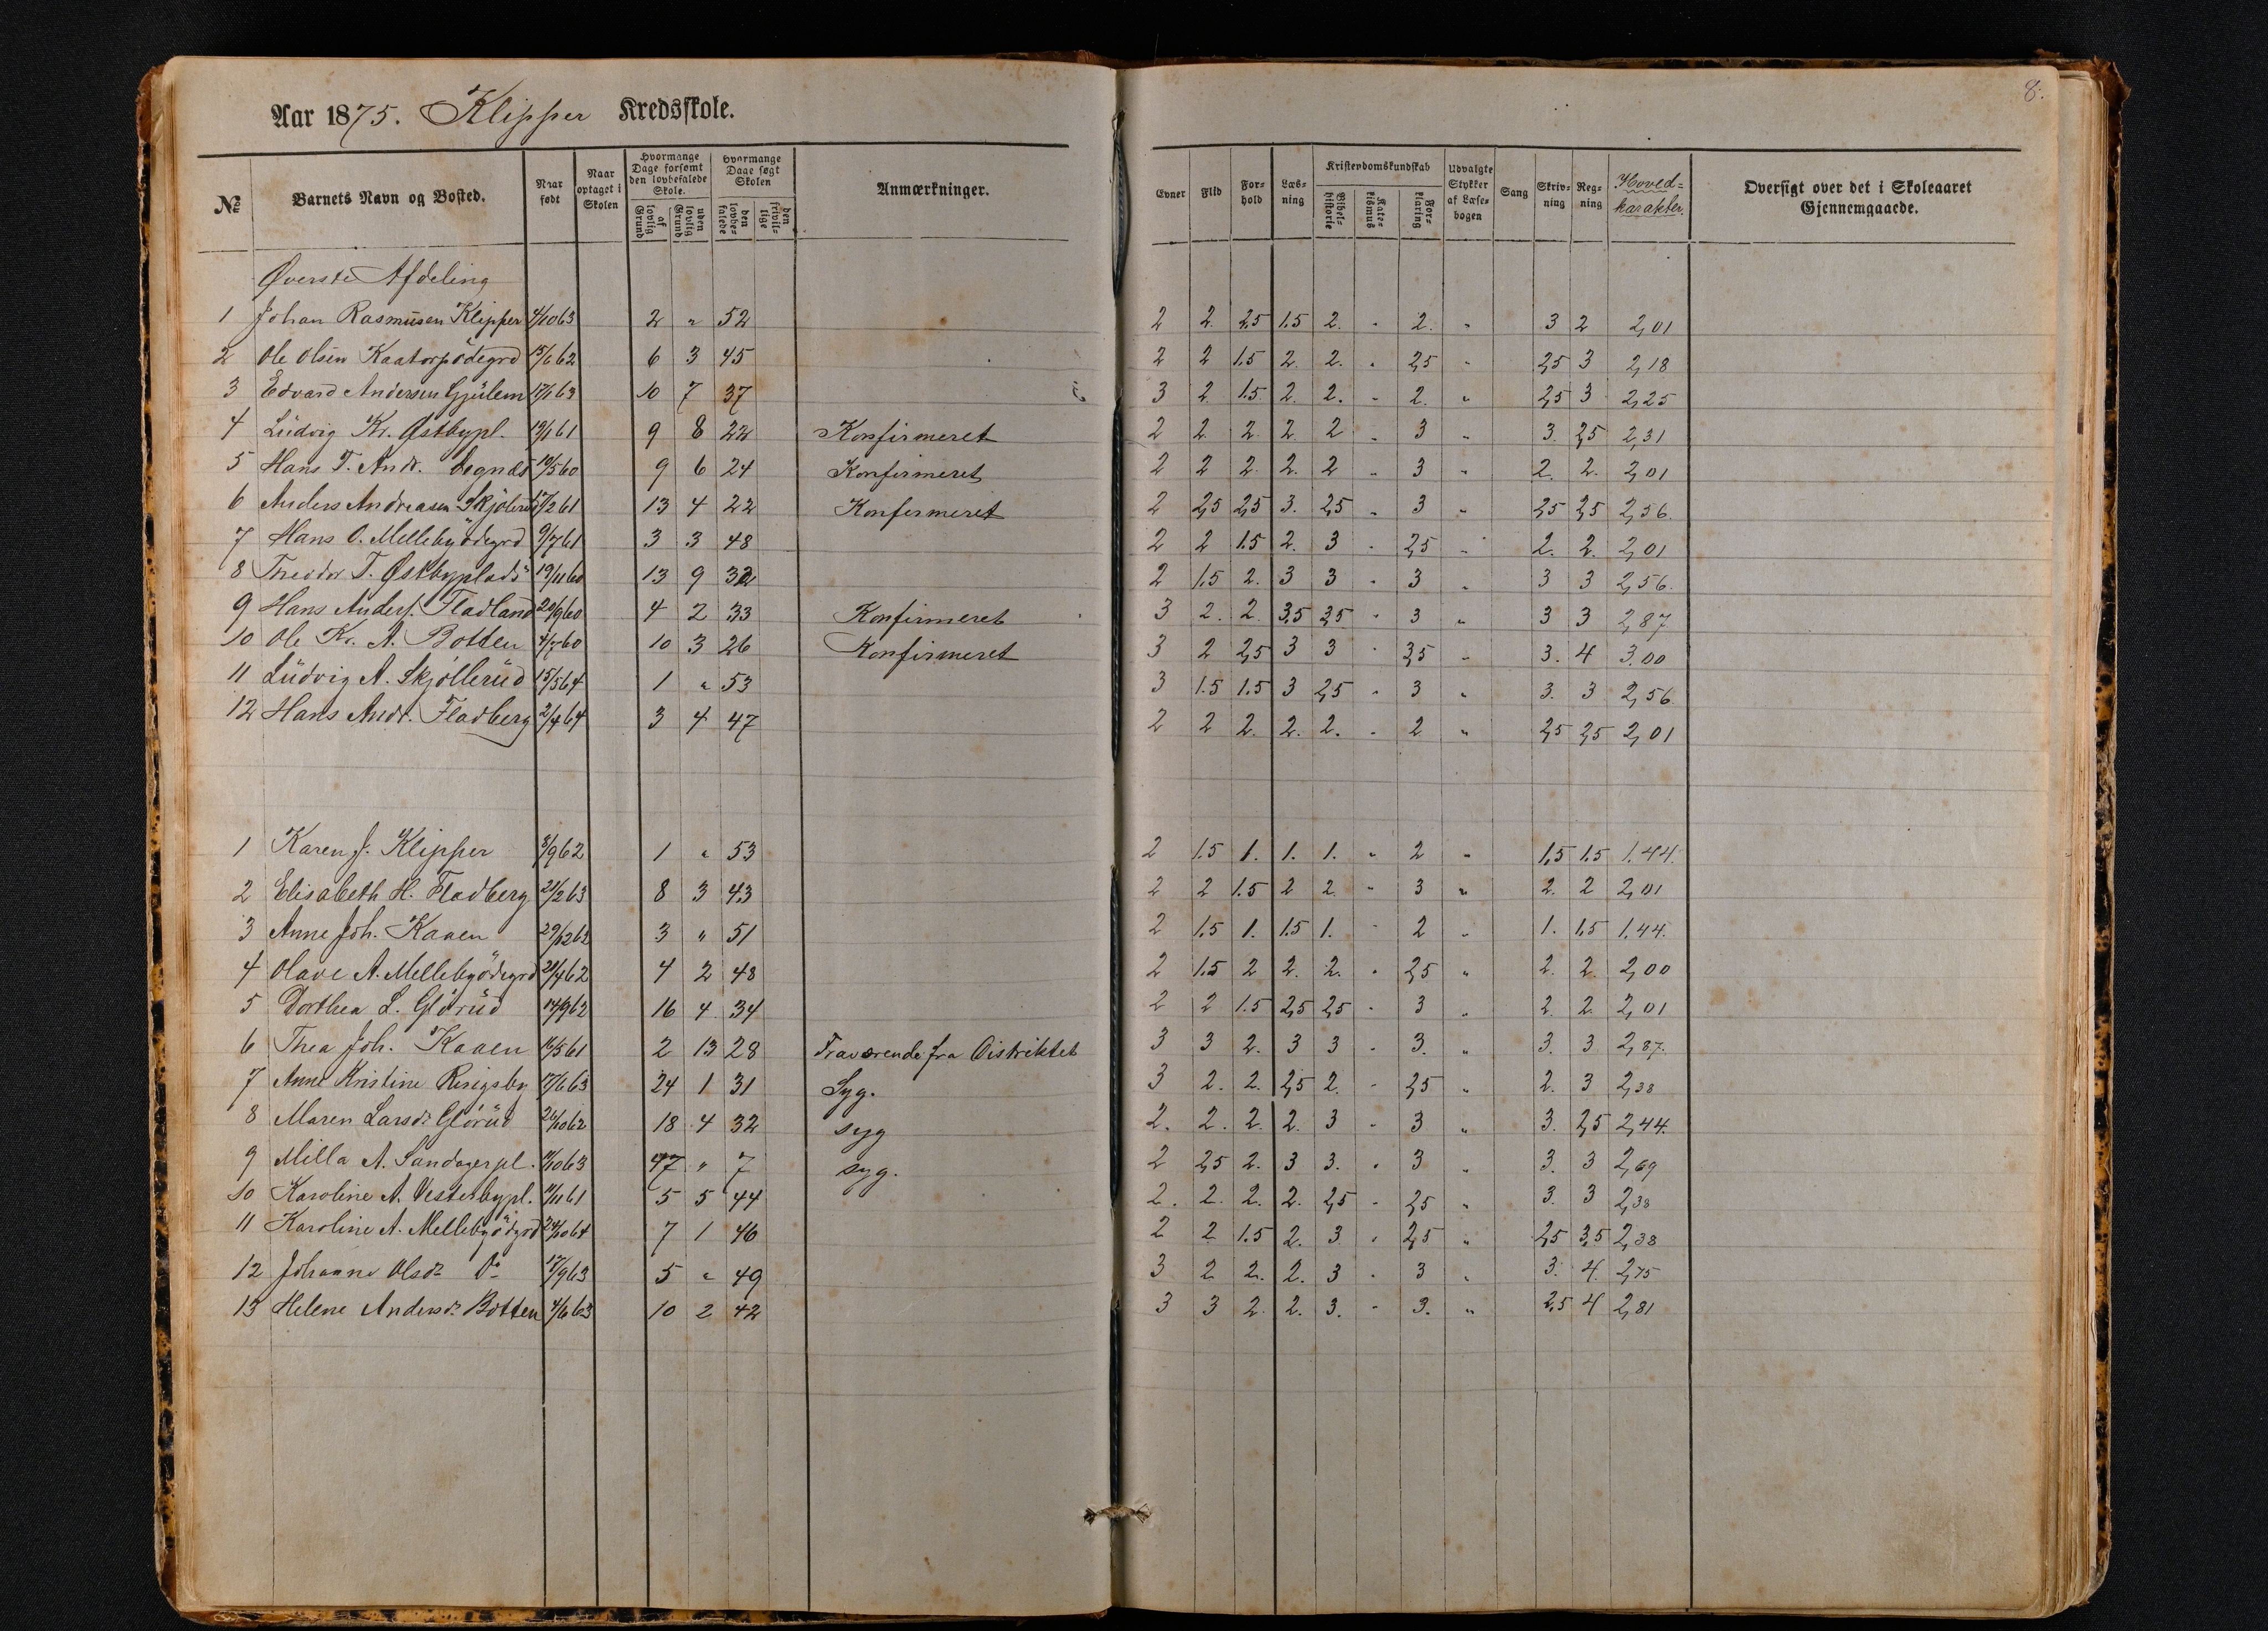 8.
Aar 1875. Klipper Kredsskole.
№ Barnets Navn og Bosted. Naar født Naar optaget i Skolen Hvormange Dage forsømt den lovbefalede Skole. af lovlig Grund uden lovlig Grund Hvormange Dage søgt Skolen den lovbefalede den frivillige Anmærkninger. Evner Flid Forhold Læsning Kristendomskundskab Bibelhistorie Katekismus Forklaring Udvalgte Stykker af Læsebogen Sang Skrivning Regning Hovedkarakter. Oversigt over det i Skoleaaret Gjennemgaaede.
Øverste Afdeling
1 Johan Rasmusen Klipper 4/10 63 2 " 52 2 2. 2,5 1.5 2. " 2. " 3 2 2,01
2 Ole Olsen Kaatorpødegrd 15/6 62 6 3 45 2 2 1.5 2. 2. " 2,5 " 2,5 3 2,18
3 Edvard Andersen Gjülem 17/1 63 10 7 37 3 2 1.5 2. 2. " 2. " 2,5 3 2,25
4 Lüdvig Kr. Østbypl. 19/1 61 9 8 22 Konfirmeret 2 2 2. 2. 2 " 3 " 3. 2,5 2,31
5 Hans T. Andr. 19/5 60 9 6 24 Konfirmeret 2 2 2. 2. 2 " 3 " 2. 2. 2,01
6 Anders Andreasen 17/2 61 13 4 22 Konfermeret 2 2,5 2,5 3. 2,5 " 3 " 2,5 2,5 2,56.
7 Hans O. Mellebyödegrd 9/7 61 3 3 48 2 2 1.5 2. 3 " 2,5 " 2. 2. 2,01
8 Theodor T. Østbyplads 19/11 60 13 9 32 2 1.5 2. 3 3 " 3 " 3 3 2,56.
9 Hans Anders. Fladland 20/9 60 4 2 33 Konfirmeret 3 2. 2. 3,5 3,5 " 3 " 3 3 2,87
10 Ole Kr. A. Botten 4/7 60 10 3 26 Konfirmeret 3 2 2,5 3 3 " 3,5 " 3. 4 3.00
11 Lüdvig A. Skjöllerüd 15/5 64 1 " 53 3 1.5 1.5 3 2,5 " 3 " 3. 3 2,56.
12 Hans Andr. Fladberg 2/4 64 3 4 47 2 2 2. 2. 2. " 2 " 2,5 2,5 2,01
1 Karen J. Klipper 3/9 62 1 " 53 2 1.5 1. 1. 1. " 2 " 1,5 1.5 1.44.
2 Elisabeth H. Fladberg 21/2 63 8 3 43 2 2 1.5 2 2. " 3 " 2. 2 2,01
3 Anne Joh. Kaaen 29/12 62 3 " 51 2 1.5 1. 1.5 1. " 2 " 1. 1.5 1.44.
4 Olave A. Mellebyödegrd 21/4 62 4 2 48 2 1.5 2 2. 2. " 2,5 " 2. 2. 2,00
5 Dorthea L. Glörüd 14/9 62 16 4 34 2 2 1.5 2,5 2,5 " 3 " 2. 2. 2,01
6 Thea Joh. Kaaen 16/5 61 2 13 28 Fraværende fra Distriktet 3 3 2. 3 3 " 3. " 3. 3 2,87.
7 Anne Kristine 17/6 63 24 1 31 Syg. 3 2. 2. 2,5 2. " 2,5 " 2. 3 2,38
8 Maren Larsdr. Glörüd 26/10 62 18 4 32 syg 2. 2. 2. 2. 3 " 3 " 3. 2,5 2,44.
9 Milla A. Sandagerpl. 11/10 63 47 " 7 syg. 2 2,5 2. 3 3. " 3 " 3. 3 2,69
10 Karoline A. Vesterbypl. 11/11 61 5 5 44 2. 2. 2. 2. 2,5 " 2,5 " 3. 3 2,38
11 Karoline A. Mellebyödgrd 24/10 64 7 1 46 2 2 1.5 2. 3 " 2,5 " 2,5 3,5 2,38
12 Johanne Olsdr. Do 17/9 63 5 " 49 3 2 2. 2. 3 " 3 " 3. 4. 2,75
13 Helene Andersdr. Botten 4/6 63 10 2 42 3 3 2. 2. 3. " 3. " 2,5 4 2,81